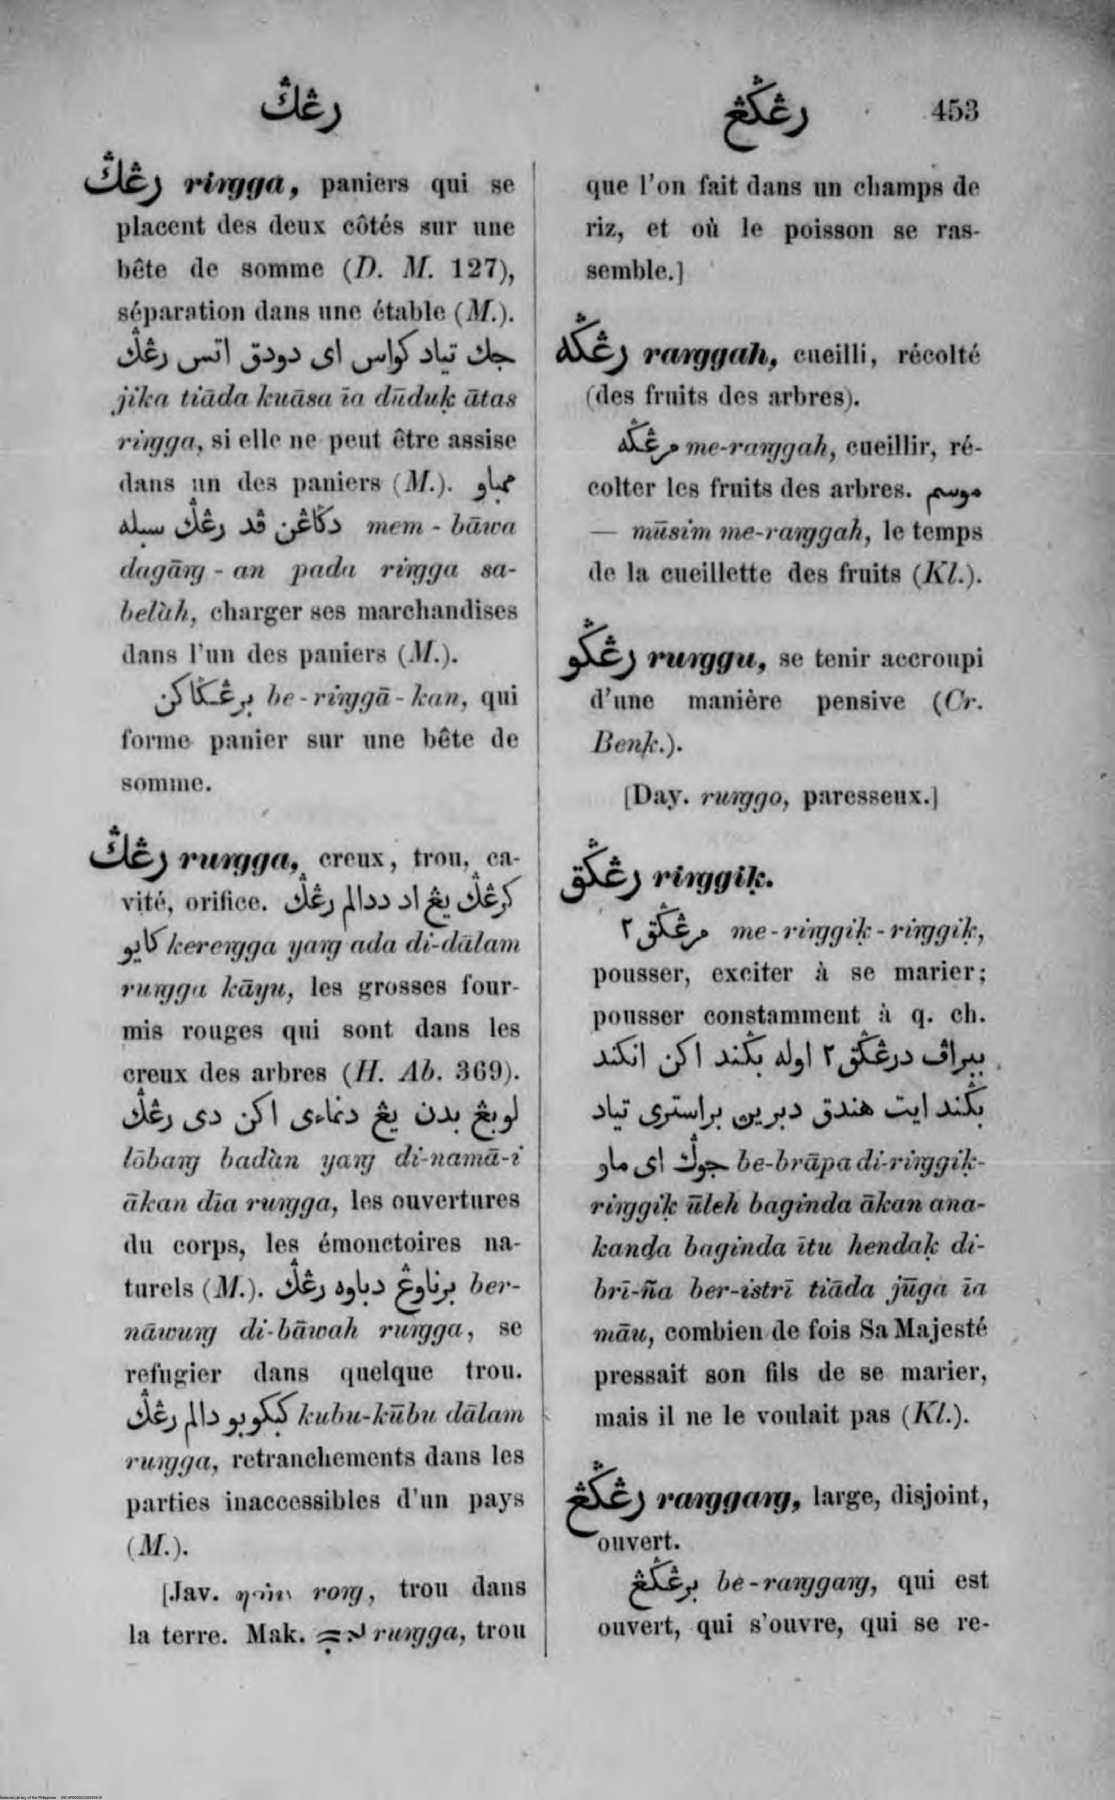 رڠݢ
رڠݢڠ 453
رڠݢ riŋga, paniers qui se
placent des deux côtés sur une
bête de somme (D. M. 127),
séparation dans une étable (M.).
جك تياد كواس اى دودق اتس رڠݢ
jika tiāda kuāsa īa dūduḳ ātas
riŋga, si elle ne peut être assise
dans un des paniers (M.). ممباو
دݢاڠن ڤد رڠݢ سبله mem-bāwa
dagāŋ-an pada riŋga sa-
belàh, charger ses marchandises
dans l'un des paniers (M.).
برڠݢاكن be-riŋgā-kan, qui
forme panier sur une bête de
somme.
رڠݢ ruŋga, creux, trou, ca-
vité, orifice. كرڠݢ يڠ اد ددالم رڠݢ
كايو kereŋga yaŋ ada di-dālam
ruŋga kāyu, les grosses four-
mis rouges qui sont dans les
creux des arbres (H. Ab. 369).
لوبڠ بدن يڠ دنماءى اكن دى رڠݢ
lōbaŋ badàn yaŋ di-namā-i
ākan dīa ruŋga, les ouvertures
du corps, les émonctoires na-
turels (M.). برناوڠ دباوه رڠݢ ber-
nāwuŋ di-bāwah ruŋga, se
refugier dans quelque trou.
كبكوبو دالم رڠݢ kubu-kūbu dālam
ruŋga, retranchements dans les
parties inaccessibles d'un pays
(M.).
[Jav. roŋ, trou dans
la terre. Mak. ruŋga, trou
que l'on fait dans un champs de
riz, et où le poisson se ras-
semble.]
رڠݢه raŋgah, cueilli, récolté
(des fruits des arbres).
مرڠݢه me-raŋgah, cueillir, ré-
colter les fruits des arbres. موسم
— mūsim me-raŋgah, le temps
de la cueillette des fruits (Kl.).
رڠݢو ruŋgu, se tenir accroupi
d'une manière pensive (Cr.
Benk.).
[Day. ruŋgo, paresseux.]
رڠݢق riŋgiḳ.
مرڠݢق٢ me-riŋgiḳ-riŋgiḳ,
pousser, exciter à se marier;
pousser constamment à q. ch.
ببراڤ درڠݢق٢ اوله بݢند اكن انكند
بݢند ايت هندق دبرين براسترى تياد
جوݢ اى ماو be-brāpa di-riŋgiḳ-
riŋgiḳ ūleh baginda ākan ana-
kanda baginda ītu hendaḳ di-
brī-ña ber-istrī tiāda jūga īa
māu, combien de fois Sa Majesté
pressait son fils de se marier,
mais il ne le voulait pas (Kl.).
رڠݢڠ raŋgaŋ, large, disjoint,
ouvert.
برڠݢڠ be-raŋgaŋ, qui est
ouvert, qui s'ouvre, qui se re-